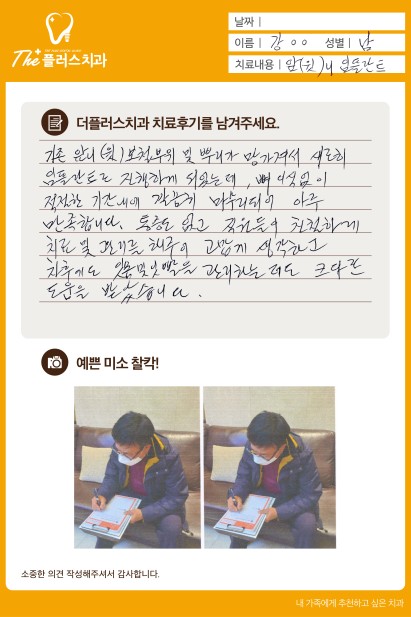 The 플러스치과
날짜 |
이름 | 강ㅇㅇ 성별 | 남
치료내용 | 앞(윗)니 임플란트
더플러스치과 치료후기를 남겨주세요.
기존 앞니(윗) 보철부위 및 뿌리가 망가져서 새로이
임플란트로 진행하게 되었는데, 빠짐없이
적절한 기간내에 깔끔히 마무리되어 아주
만족합니다. 통증도 없고 직원들이 친절하게
치료 및 관리를 해주어 고맙게 생각하고
차후에도 잇몸및잇빨을 관리하는데도 크다란
도움을 받았습니다.
예쁜 미소 찰칵!
소중한 의견 작성해주셔서 감사합니다.
내 가족에게 추천하고 싶은 치과